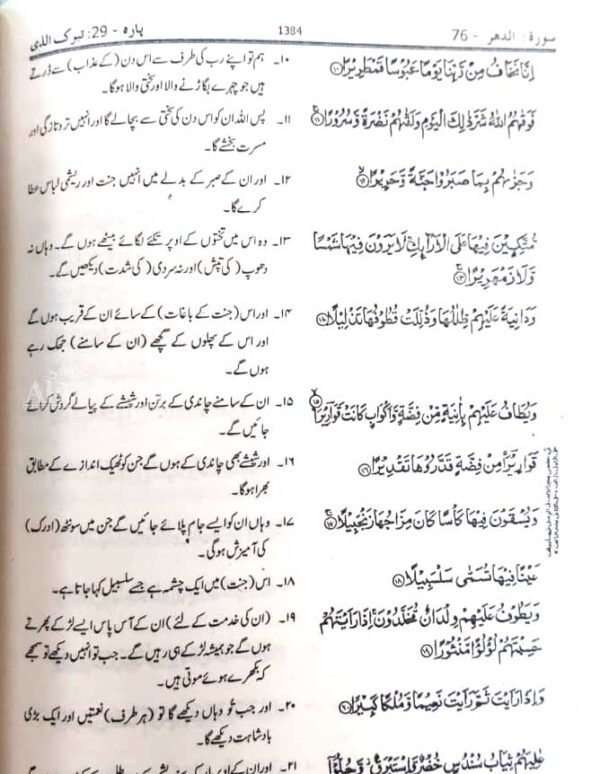 سورة: الدهر - 76 1384 پارہ - 29: تبرک الذی
اِنَّا نَخَافُ مِنْ رَّبِّنَا يَوْمًا عَبُوْسًا قَمْطَرِيْرًا ۝۱۰
فَوَقٰىهُمُ اللّٰهُ شَرَّ ذٰلِكَ الْيَوْمِ وَلَقّٰىهُمْ نَضْرَةً وَّسُرُوْرًا ۝۱۱
وَجَزٰىهُمْ بِمَا صَبَرُوْا جَنَّةً وَّحَرِيْرًا ۝۱۲
مُّتَّكِـِٕيْنَ فِيْهَا عَلَى الْاَرَآىِٕكِ ۚ لَا يَرَوْنَ فِيْهَا شَمْسًا
وَّلَا زَمْهَرِيْرًا ۝۱۳
وَدَانِيَةً عَلَيْهِمْ ظِلٰلُهَا وَذُلِّلَتْ قُطُوْفُهَا تَذْلِيْلًا ۝۱۴
وَيُطَافُ عَلَيْهِمْ بِاٰنِيَةٍ مِّنْ فِضَّةٍ وَّاَكْوَابٍ كَانَتْ قَوَارِيْرَا۠ ۝۱۵
قَوَارِيْرَا۠ مِنْ فِضَّةٍ قَدَّرُوْهَا تَقْدِيْرًا ۝۱۶
وَيُسْقَوْنَ فِيْهَا كَاْسًا كَانَ مِزَاجُهَا زَنْجَبِيْلًا ۝۱۷
عَيْنًا فِيْهَا تُسَمّٰى سَلْسَبِيْلًا ۝۱۸
وَيَطُوْفُ عَلَيْهِمْ وِلْدَانٌ مُّخَلَّدُوْنَ ۚ اِذَا رَاَيْتَهُمْ
حَسِبْتَهُمْ لُؤْلُؤًا مَّنْثُوْرًا ۝۱۹
وَاِذَا رَاَيْتَ ثَمَّ رَاَيْتَ نَعِيْمًا وَّمُلْكًا كَبِيْرًا ۝۲۰
عٰلِيَهُمْ ثِيَابُ سُنْدُسٍ خُضْرٌ وَّاِسْتَبْرَقٌ ۖ وَّحُلُّوْٓا
۱۰۔ ہم تو اپنے رب کی طرف سے اس دن (کے عذاب) سے ڈرتے
ہیں جو چہرے بگاڑنے والا اور سختی والا ہوگا۔
۱۱۔ پس اللہ ان کو اس دن کی سختی سے بچا لے گا اور انہیں تروتازگی اور
مسرت بخشے گا۔
۱۲۔ اور ان کے صبر کے بدلے میں انہیں جنت اور ریشمی لباس عطا
کرے گا۔
۱۳۔ وہ اس میں تختوں کے اوپر تکیے لگائے بیٹھے ہوں گے۔ وہاں نہ
دھوپ (کی تپش) اور نہ سردی (کی شدت) دیکھیں گے۔
۱۴۔ اور اس (جنت کے باغات) کے سائے ان کے قریب ہوں گے
اور اس کے پھلوں کے گچھے (ان کے سامنے) جھک رہے
ہوں گے۔
۱۵۔ ان کے سامنے چاندی کے برتن اور شیشے کے پیالے گردش کرائے
جائیں گے۔
۱۶۔ اور شیشے بھی چاندی کے ہوں گے جن کو ٹھیک اندازے کے مطابق
بھرا ہوگا۔
۱۷۔ وہاں ان کو ایسے جام پلائے جائیں گے جن میں سونٹھ (ادرک)
کی آمیزش ہوگی۔
۱۸۔ اس (جنت) میں ایک چشمہ ہے جسے سلسبیل کہا جاتا ہے۔
۱۹۔ (ان کی خدمت کے لئے) ان کے آس پاس ایسے لڑکے پھرتے
ہوں گے جو ہمیشہ لڑکے ہی رہیں گے۔ جب تو انہیں دیکھے تو سمجھے
کہ بکھرے ہوئے موتی ہیں۔
۲۰۔ اور جب تو وہاں دیکھے گا تو (ہر طرف) نعمتیں اور ایک بڑی
بادشاہت دیکھے گا۔
۲۱۔ اور ان کے اوپر